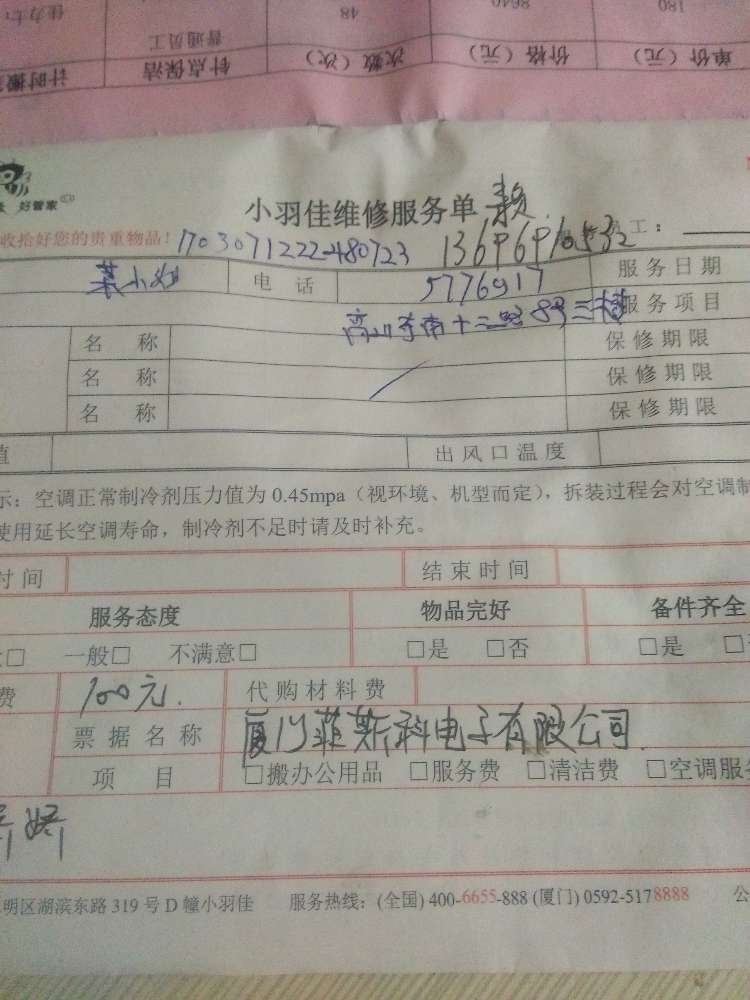 单价（元） 价格（元） 次数（次） 针点保洁 计时搬
180 8640 48 普通员工
好管家
小羽佳维修服务单 赖
收拾好您的贵重物品！ 1703071222-480723 员工：
电话 5776917 服务日期
服务项目
名称 保修期限
名称 保修期限
名称 保修期限
值 出风口温度
示：空调正常制冷剂压力值为 0.45mpa（视环境、机型而定），拆装过程会对空调制
使用延长空调寿命，制冷剂不足时请及时补充。
时间 结束时间
服务态度 物品完好 备件齐全
□ 一般□ 不满意□ □是 □否 □是 □
费 100元. 代购材料费
票据名称 厦门菲斯科电子有限公司
项目 □搬办公用品 □服务费 □清洁费 □空调服务
明区湖滨东路 319 号 D 幢小羽佳 服务热线：(全国) 400-6655-888 (厦门) 0592-5178888 公